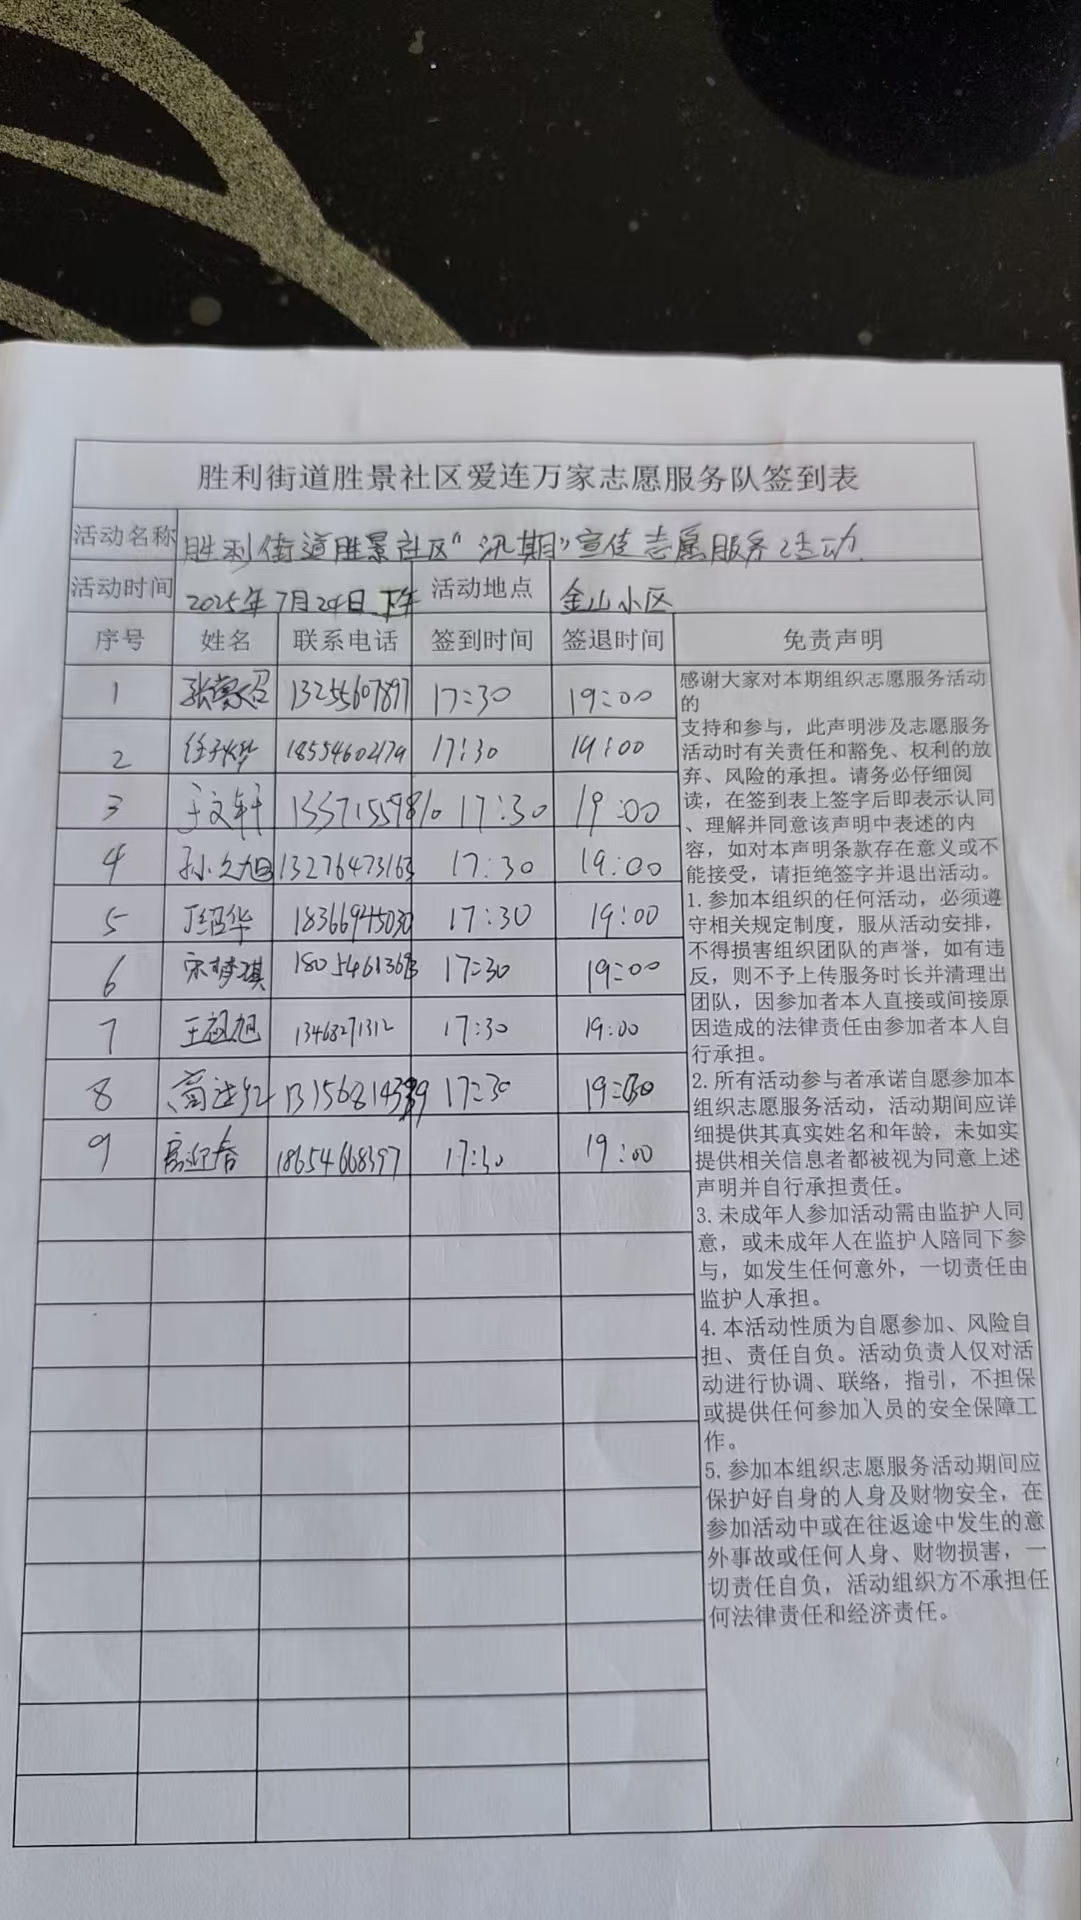 胜利街道胜景社区爱连万家志愿服务队签到表
活动名称 胜利街道胜景社区“汛期”宣传志愿服务活动
活动时间 2025年7月24日下午 活动地点 金山小区
序号 姓名 联系电话 签到时间 签退时间 免责声明
1 13255607897 17:30 19:00
2 18554602179 17:30 19:00
3 于文轩 17:30 19:00
4 孙久旭 13276473163 17:30 19:00
5 丁绍华 18366945030 17:30 19:00
6 宋梦琪 17:30 19:00
7 13468271312 17:30 19:00
8 17:30
9 高迎春 18654668397 17:30 19:00
感谢大家对本期组织志愿服务活动
的
支持和参与，此声明涉及志愿服务
活动时有关责任和豁免、权利的放
弃、风险的承担。请务必仔细阅
读，在签到表上签字后即表示认同
、理解并同意该声明中表述的内
容，如对本声明条款存在意义或不
能接受，请拒绝签字并退出活动。
1. 参加本组织的任何活动，必须遵
守相关规定制度，服从活动安排，
不得损害组织团队的声誉，如有违
反，则不予上传服务时长并清理出
团队，因参加者本人直接或间接原
因造成的法律责任由参加者本人自
行承担。
2. 所有活动参与者承诺自愿参加本
组织志愿服务活动，活动期间应详
细提供其真实姓名和年龄，未如实
提供相关信息者都被视为同意上述
声明并自行承担责任。
3. 未成年人参加活动需由监护人同
意，或未成年人在监护人陪同下参
与，如发生任何意外，一切责任由
监护人承担。
4. 本活动性质为自愿参加、风险自
担、责任自负。活动负责人仅对活
动进行协调、联络，指引，不担保
或提供任何参加人员的安全保障工
作。
5. 参加本组织志愿服务活动期间应
保护好自身的人身及财物安全，在
参加活动中或在往返途中发生的意
外事故或任何人身、财物损害，一
切责任自负，活动组织方不承担任
何法律责任和经济责任。